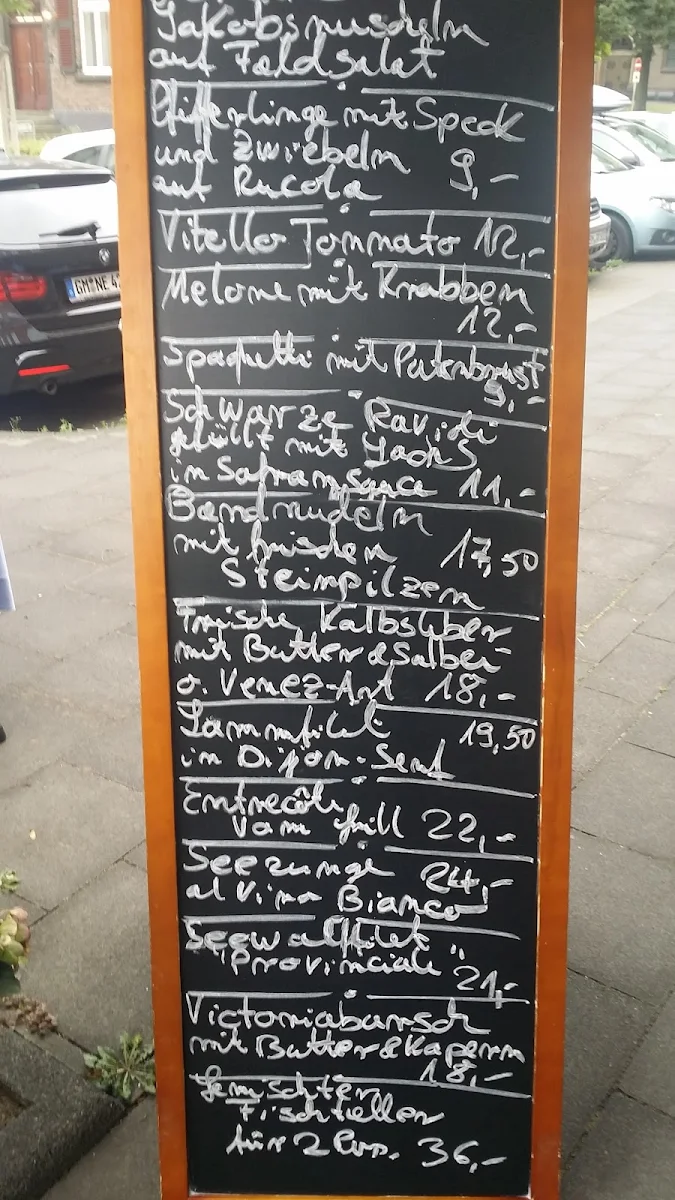 Jakobsmuscheln
auf Feldsalat
Pfifferlinge mit Speck
und Zwiebeln 9,-
auf Rucola
Vitello Tommato 12,-
Melone mit Krabben
12,-
Spaghetti mit Putenbrust
9,-
Schwarze Ravioli
gefüllt mit Lachs
in Safransauce 11,-
Bandnudeln
mit frischen 17,50
Steinpilzen
Frische Kalbsleber
mit Butter & Salbei
o. Venez-Art 18,-
Lammfilet 19,50
in Dijon-Senf
Entrecôte
vom Grill 22,-
Seezunge 24,-
al Vino Bianco
Seewolffilet
"Provinciale" 21,-
Victoriabarsch
mit Butter & Kapern
18,-
Gemischter
Fischteller
für 2 Pers. 36,-
GM NE 4